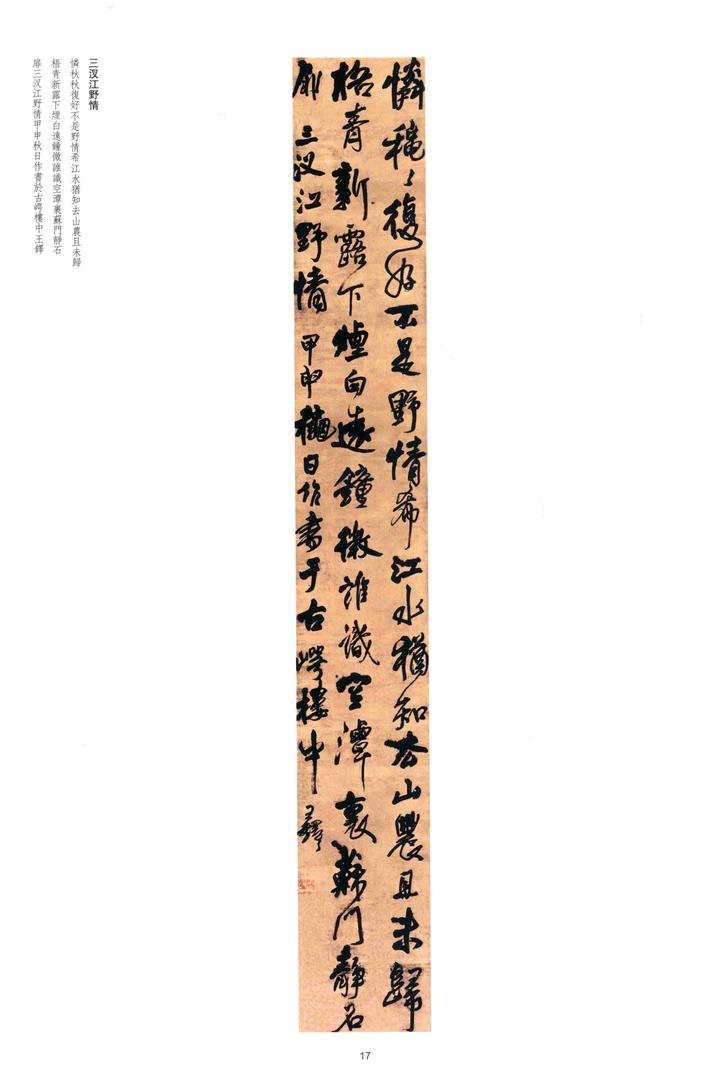 三汊江野情
憐秋秋復好不是野情希江水猶知去山農且未歸
梧青新露下煙白遠鐘微誰識空潭裏蘇門靜石
扉三汊江野情甲申秋日作書於古崿樓中王鐸
憐穐〻復好不是野情希江水猶知去山農且未歸
梧青新露下煙白遠鐘微誰識空潭裏蘇門靜石
扉 三汊江野情 甲申穐日作書于古崿樓中 王鐸
17